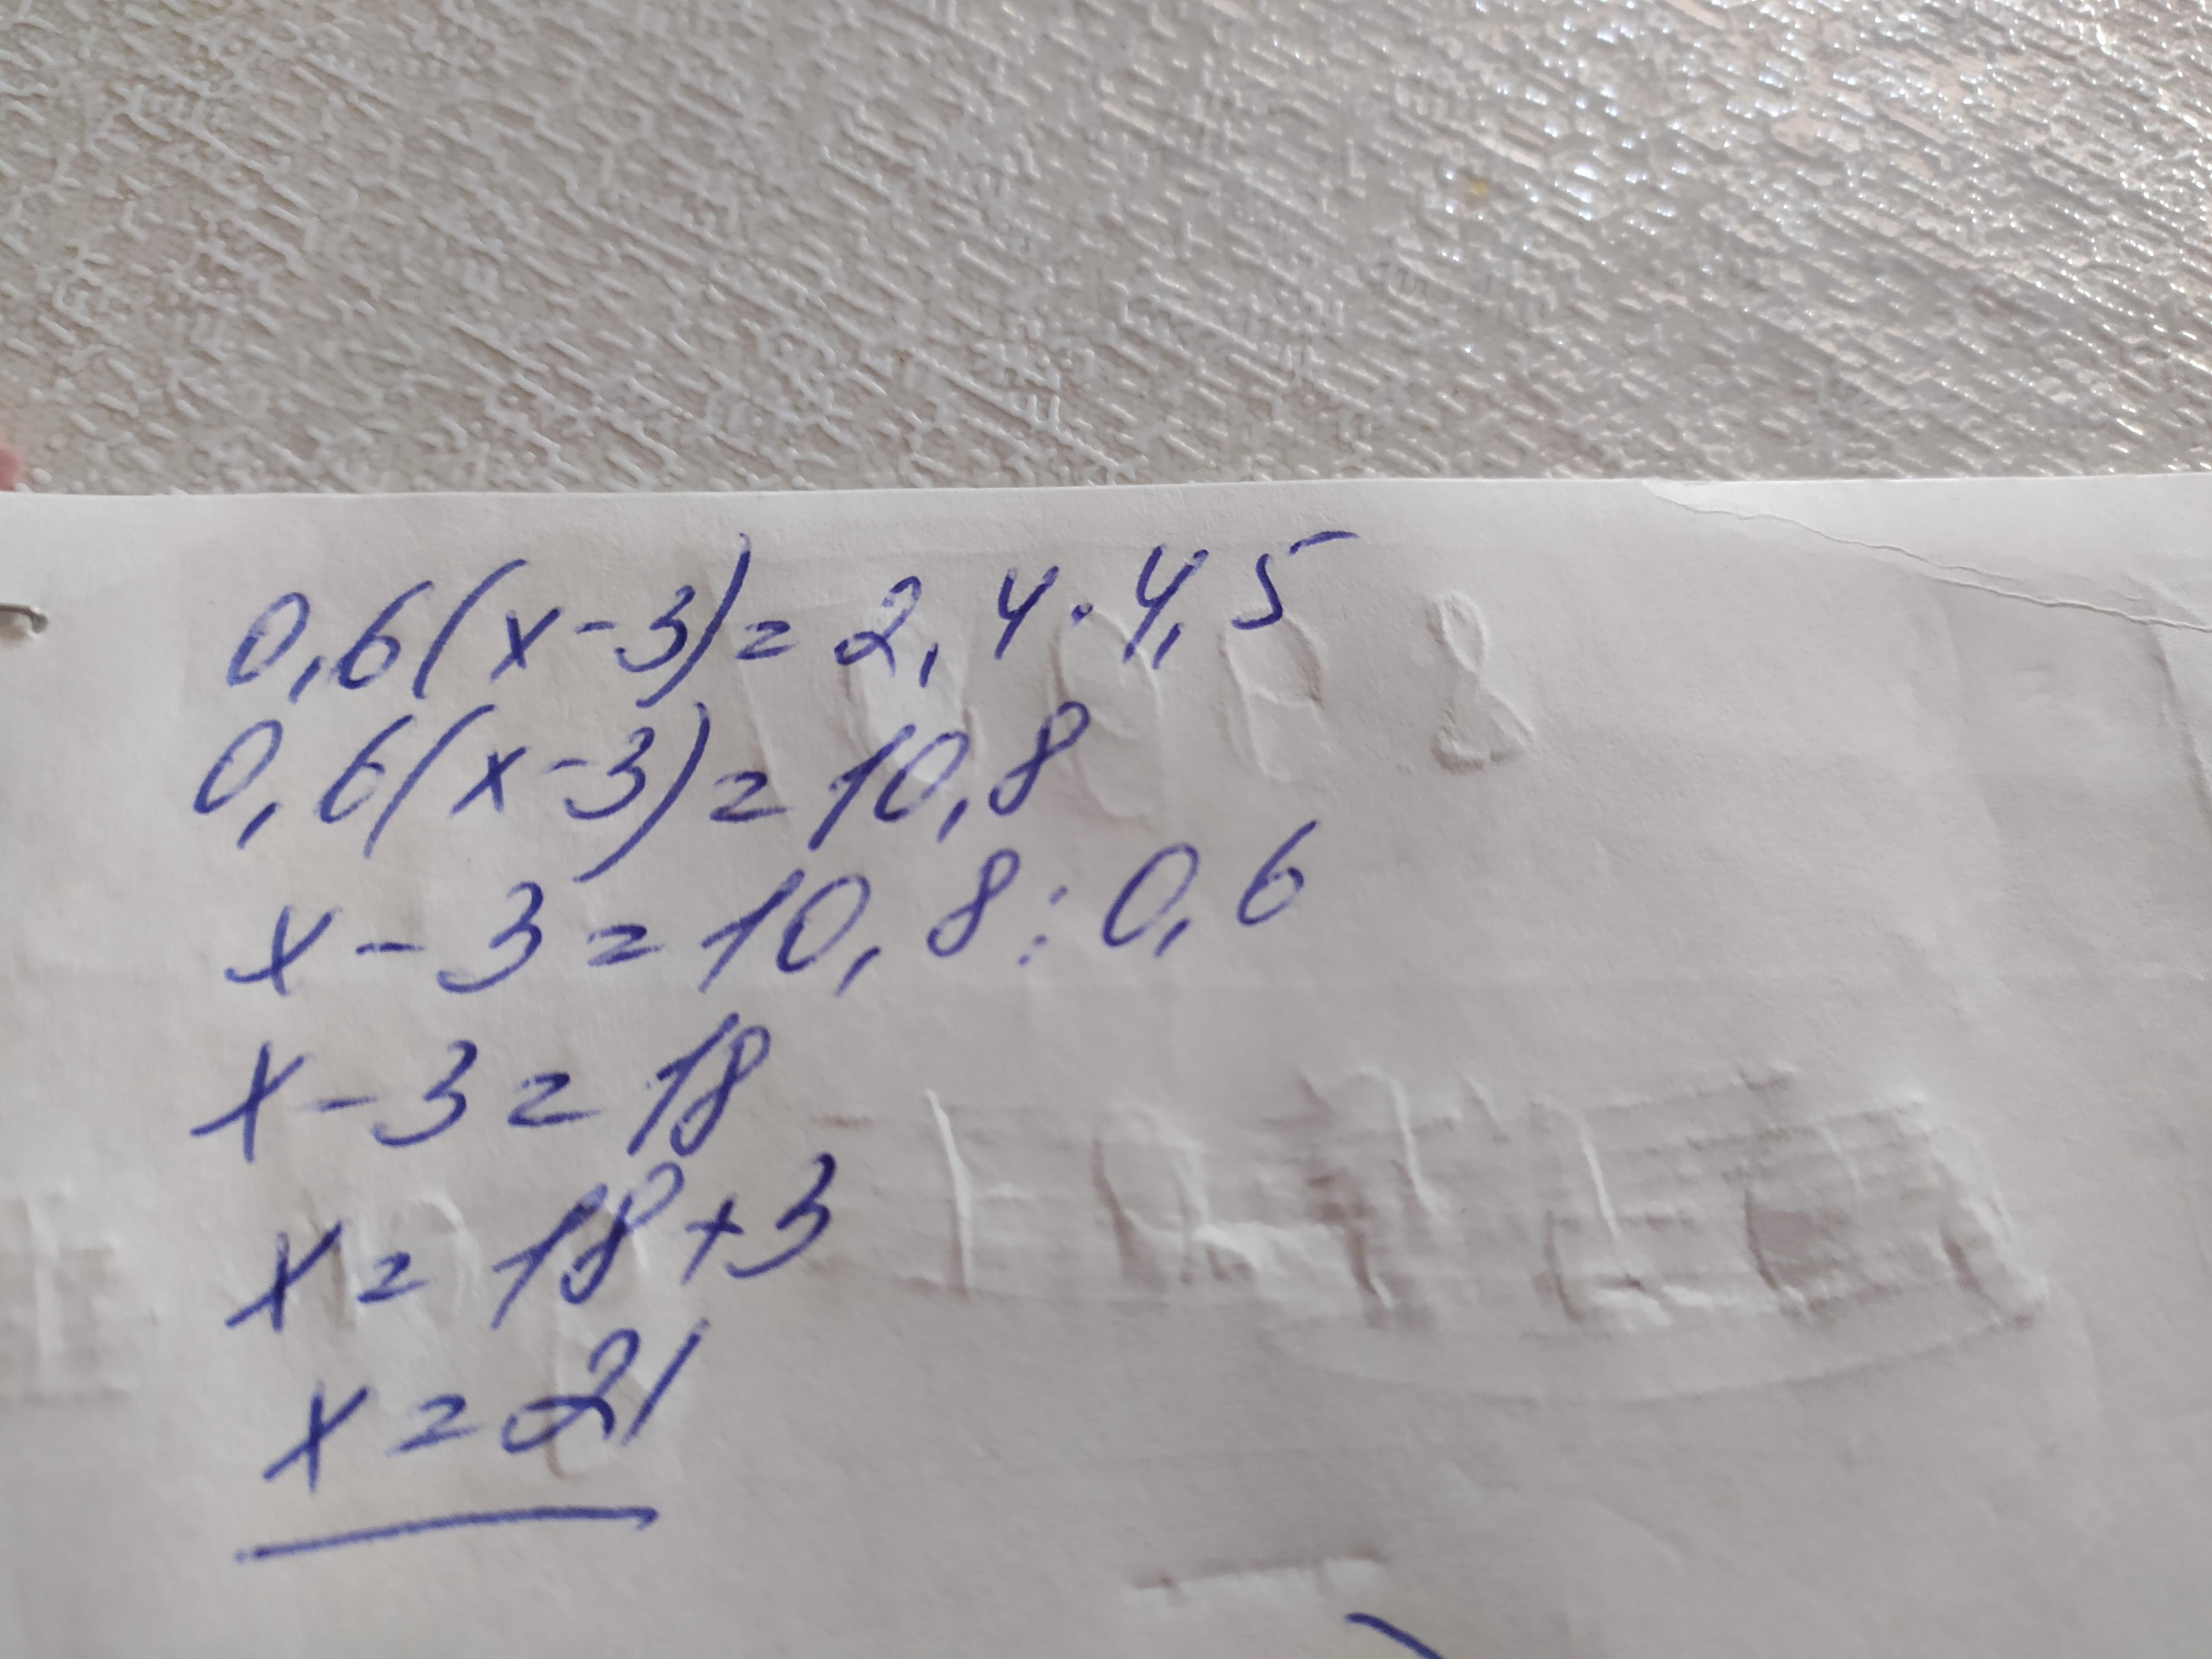 0,6(x-3)=2,4·4,5
0,6(x-3)=10,8
x-3=10,8:0,6
x-3=18
x=18+3
x=21